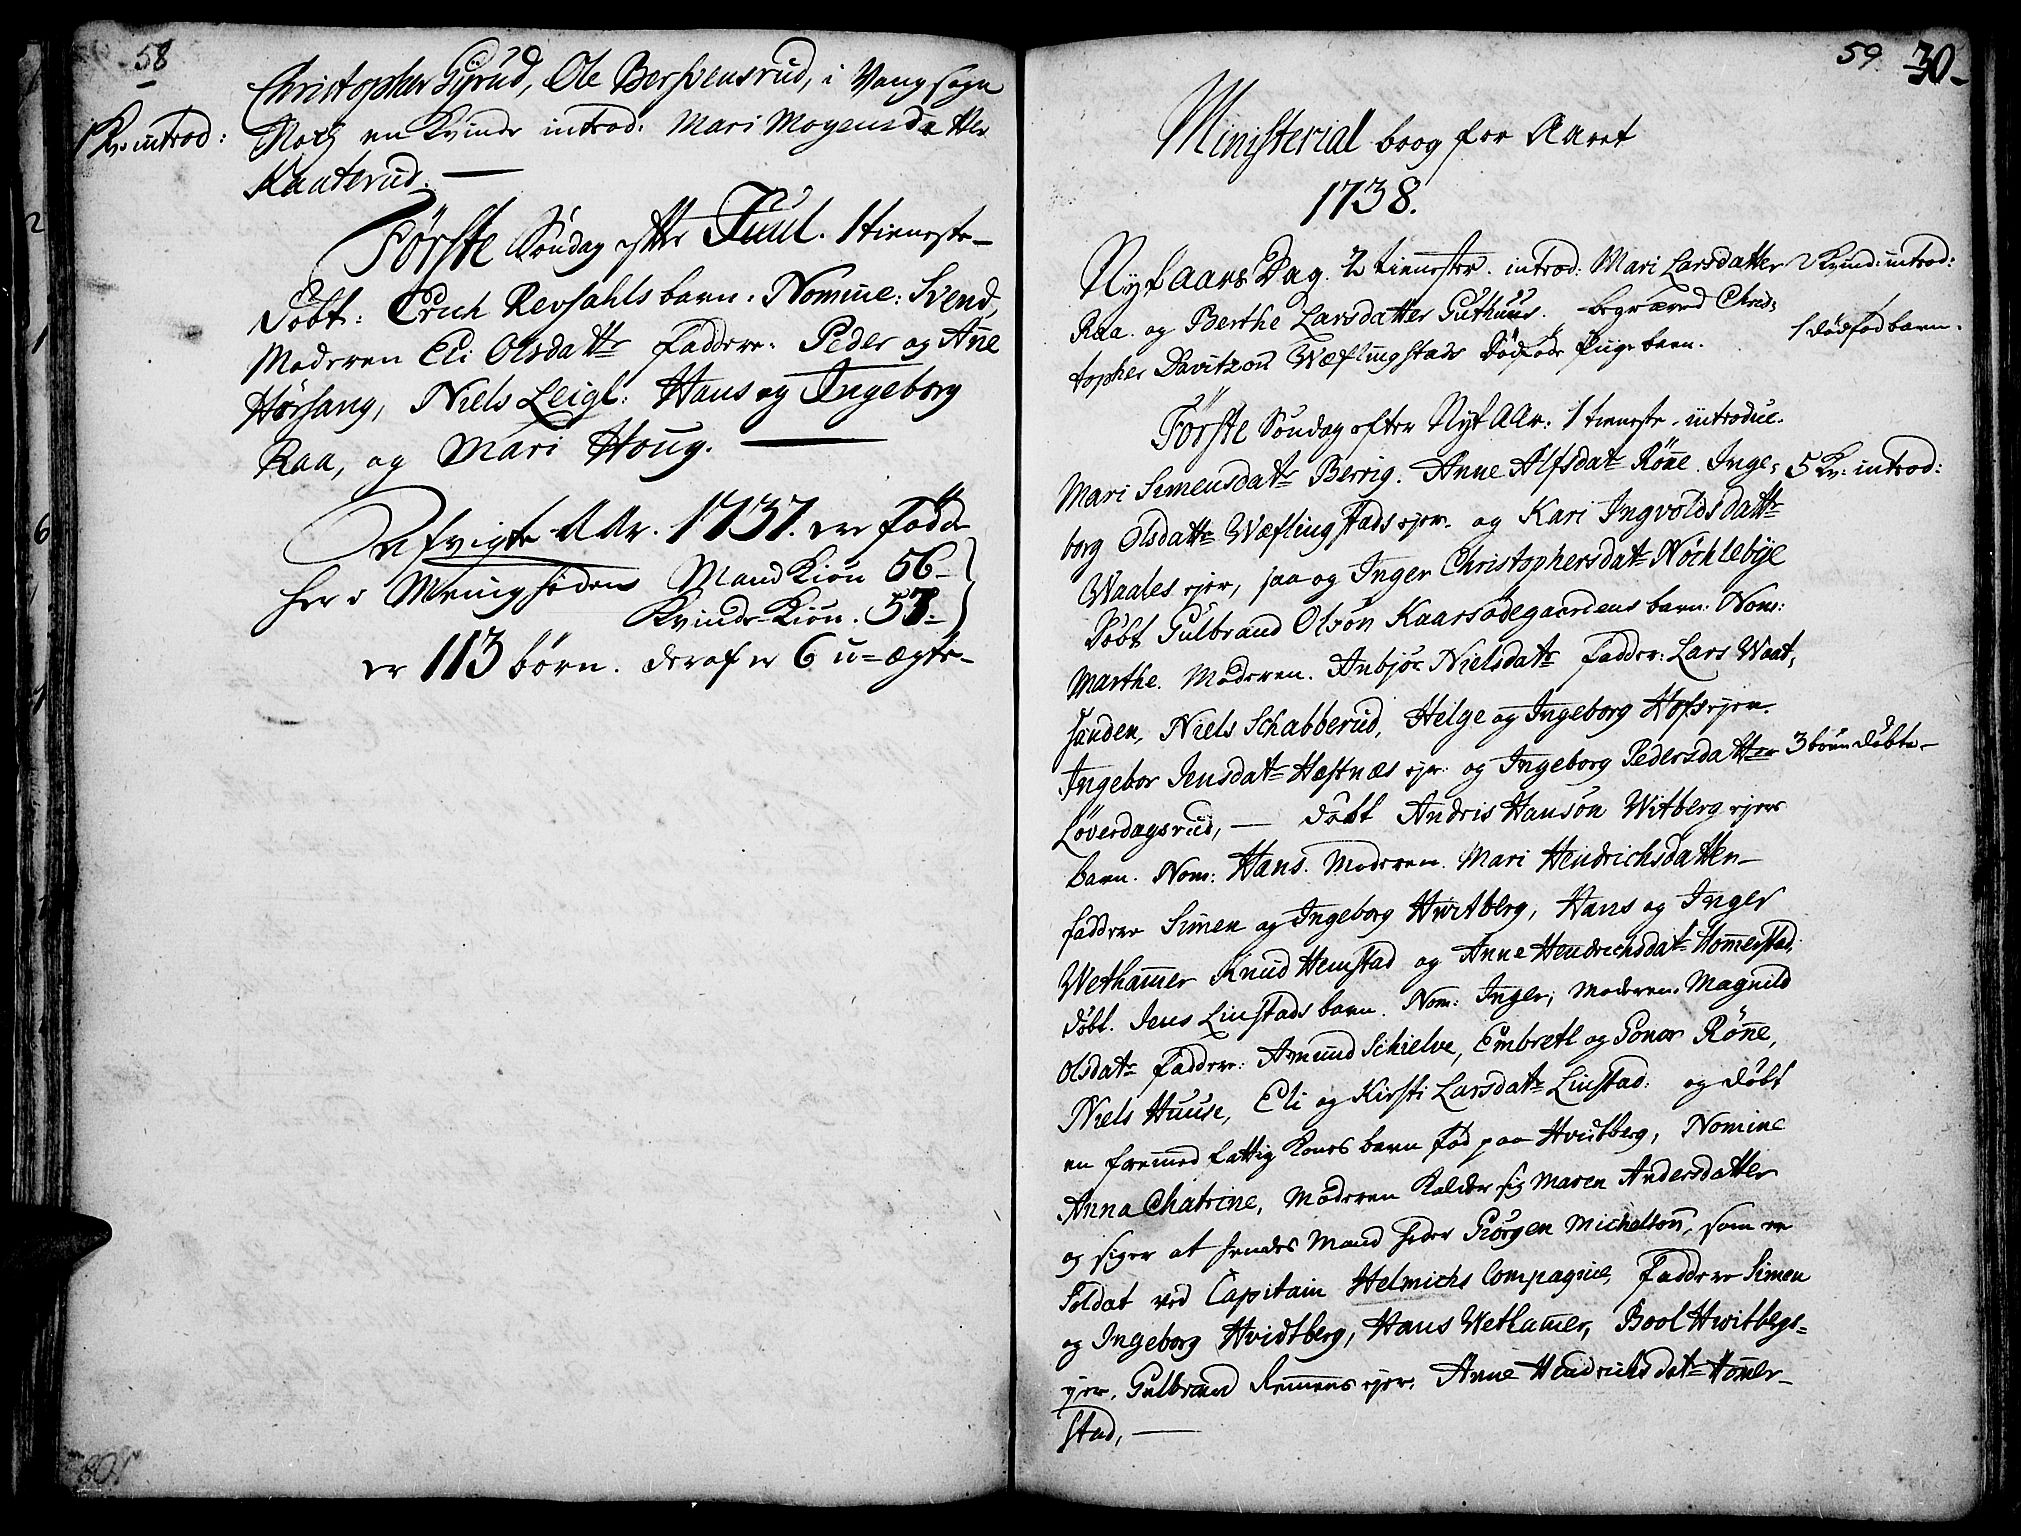 58
Christopher Gyrud, Ole Berhvensrud, i Vang sogn
1 Kv: introd: Noch en Kvinde introd: Mari Mogensdatter
Kaaterud. —
Förste Söndag efter Juul. 1 tieneste-
döbt: Erich Revsahls barn. Nomine: Svend,
Moderen Eli Olsdattr faddere. Peder og Añe
Hörsang, Niels Leigl: Hans og Ingeborg
Raa, og Mari Houg. —
Afvigte AAr. 1737. ere födde
her i Menigheden MandKiön 56-
Kvinde-Kiön. 57-
er 113 börn. deraf er 6 u-ægte-
59. 30-
Ministerial boog for Aaret
1738.
Nyt aars Dag. 2 tienester. introd: Mari Larsdatter 2 Kvind: introd:
Raa. og Berthe Larsdatter Guthuus. begraved Chris-
topher Davitzon Wæflingstads dödföde Piige barn. 1 dödföd barn.
Förste Söndag efter Nyt AAr. 1 tieneste. introduc.
Mari Simensdatr Berrig. Anne Alfsdatr Röne. Inge- 5 Kv: introd:
borg Olsdattr Wæflingstads ejer. og Kari Ingvoldsdattr
Waales ejer, saa og Inger Christophersdatr Nöchlebye
döbt Gulbrand Olsön Kaarsödegaardens barn: Nom:
Marthe. Moderen. Anbjör Nielsdatr fadder: Lars Waat,
sanden, Niels Schabberud, Helge og Ingeborg Hofs ejen.
Ingebor Jensdatr Hæstnæs ejer. og Ingeborg Pedersdatter 3 börn döbte-
Löverdagsrud, — döbt Andris Hansön Witberg ejers
barn. Nom: Hans. Moderen. Mari Hendrichsdatter-
faddere Simen og Ingeborg Hwitberg, Hans og Inger
Wethamer Knud Hemstad og Anne Hendrichsdatr Homerstad.
döbt. Jens Linstads barn. Nom: Inger; Moderen. Magnild
Olsdatr faddere: Amund Schielve, Embrett og Gonor Röne,
Niels Huuse, Eli og Kirsti Larsdatr Linstad: og döbt
en fremmed fattig Kones barn föd paa Hvidberg, Nomine
Anna Chatrine, Moderen kalder sig Maren Andersdatter
og siger at hendes Mand heder Giörgen Michelson, som er
Soldat ved Capitain Helmichs Compagnie, Faddere Simen
og Ingeborg Hvidtberg, Hans Wethamer, Bool Hwitbegs-
ejer. Gulbrand Remens ejer. Anne Hendrichsdatr Homer-
stad, —